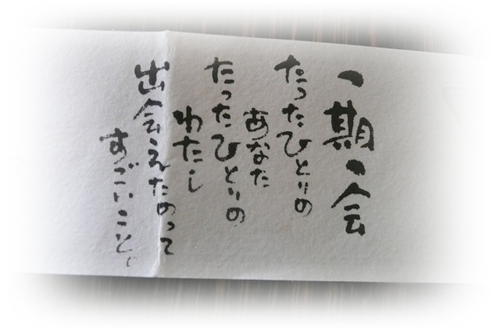 一期一会
たったひとりの
あなた
たったひとりの
わたし
出会えためって
すごいこと。